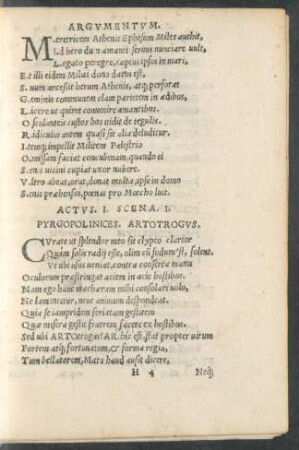 ARGVMENTVM.
Meretricem Athenis Ephesum Miles auehit,
Id hero dum amanti seruus nunciare uult,
Legato peregre, captus ipsus in mari,
Et illi eidem Militi dono datus est,
Suum arcessit herum Athenis, atq; perforat
Geminis communem clam parietem in ædibus,
Licere ut quiret conuenire amantibus.
Obsculanteis custos hos uidit de tegulis.
Ridiculus autem quasi sit alia deluditur.
Itemq; impellit Militem Palestrio
Omissam faciat concubinam, quando ei
Senis uicini cupiat uxor nubere.
Vltro abeat, orat, donat multa, ipse in domo
Senis præhensus, pœnas pro Mœcho luit.
ACTVS. I. SCENA. I.
PYRGOPOLINICES. ARTOTROGVS.
CVrate ut splendor meo sit clypeo clarior
Quàm solis radij esse, olim cũ sudum'st, solent.
Vt ubi usus ueniat, contra conserta manu
Oculorum præstringat aciem in acie hostibus.
Nam ego hanc machæram mihi consolari uolo,
Ne lamentetur, neue animum despondeat.
Quia se iampridem feriatam gestitem
Quæ misera gestit fratrem facere ex hostibus.
Sed ubi ARTOtrogus? AR. hic est, stat propter uirum
Fortem atq; fortunatum, & forma regia,
Tum bellatorem, Mars haud ausit dicere,
H 4 Neq;